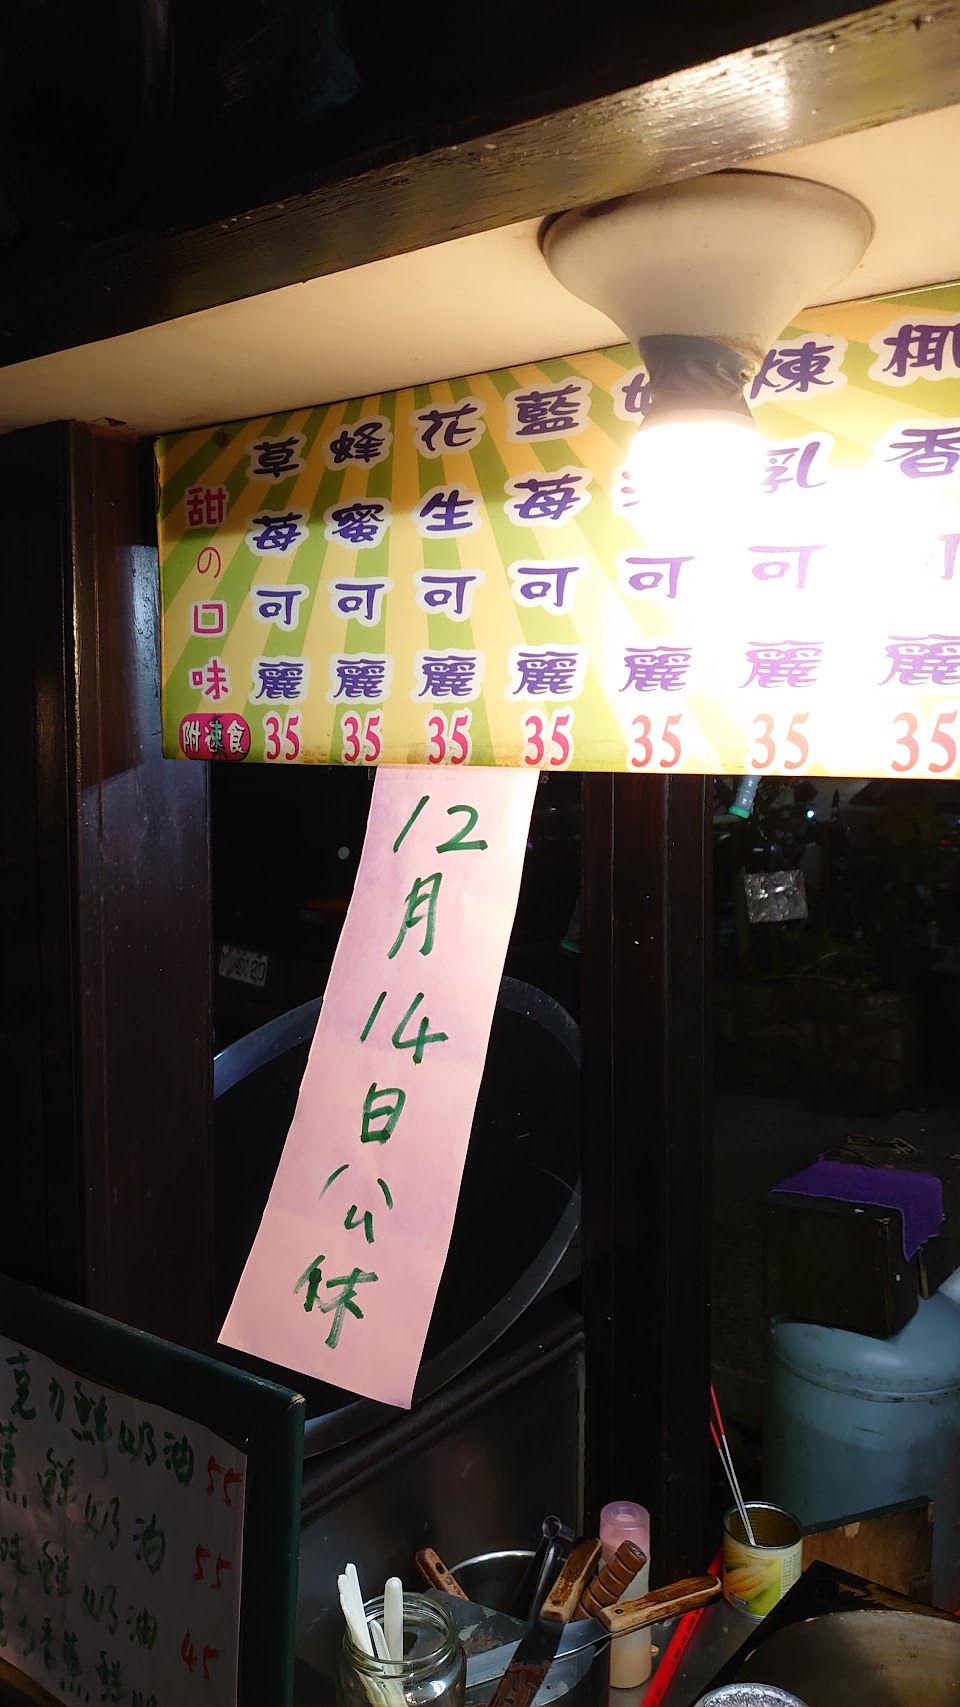 甜の口味
附速食
草莓可麗35
蜂蜜可麗35
花生可麗35
藍莓可麗35
可麗35
煉乳可麗35
椰香可麗35
12月14日公休
克力鮮奶油 55
蕉鮮奶油 55
味鮮奶油 45
力香蕉鮮奶